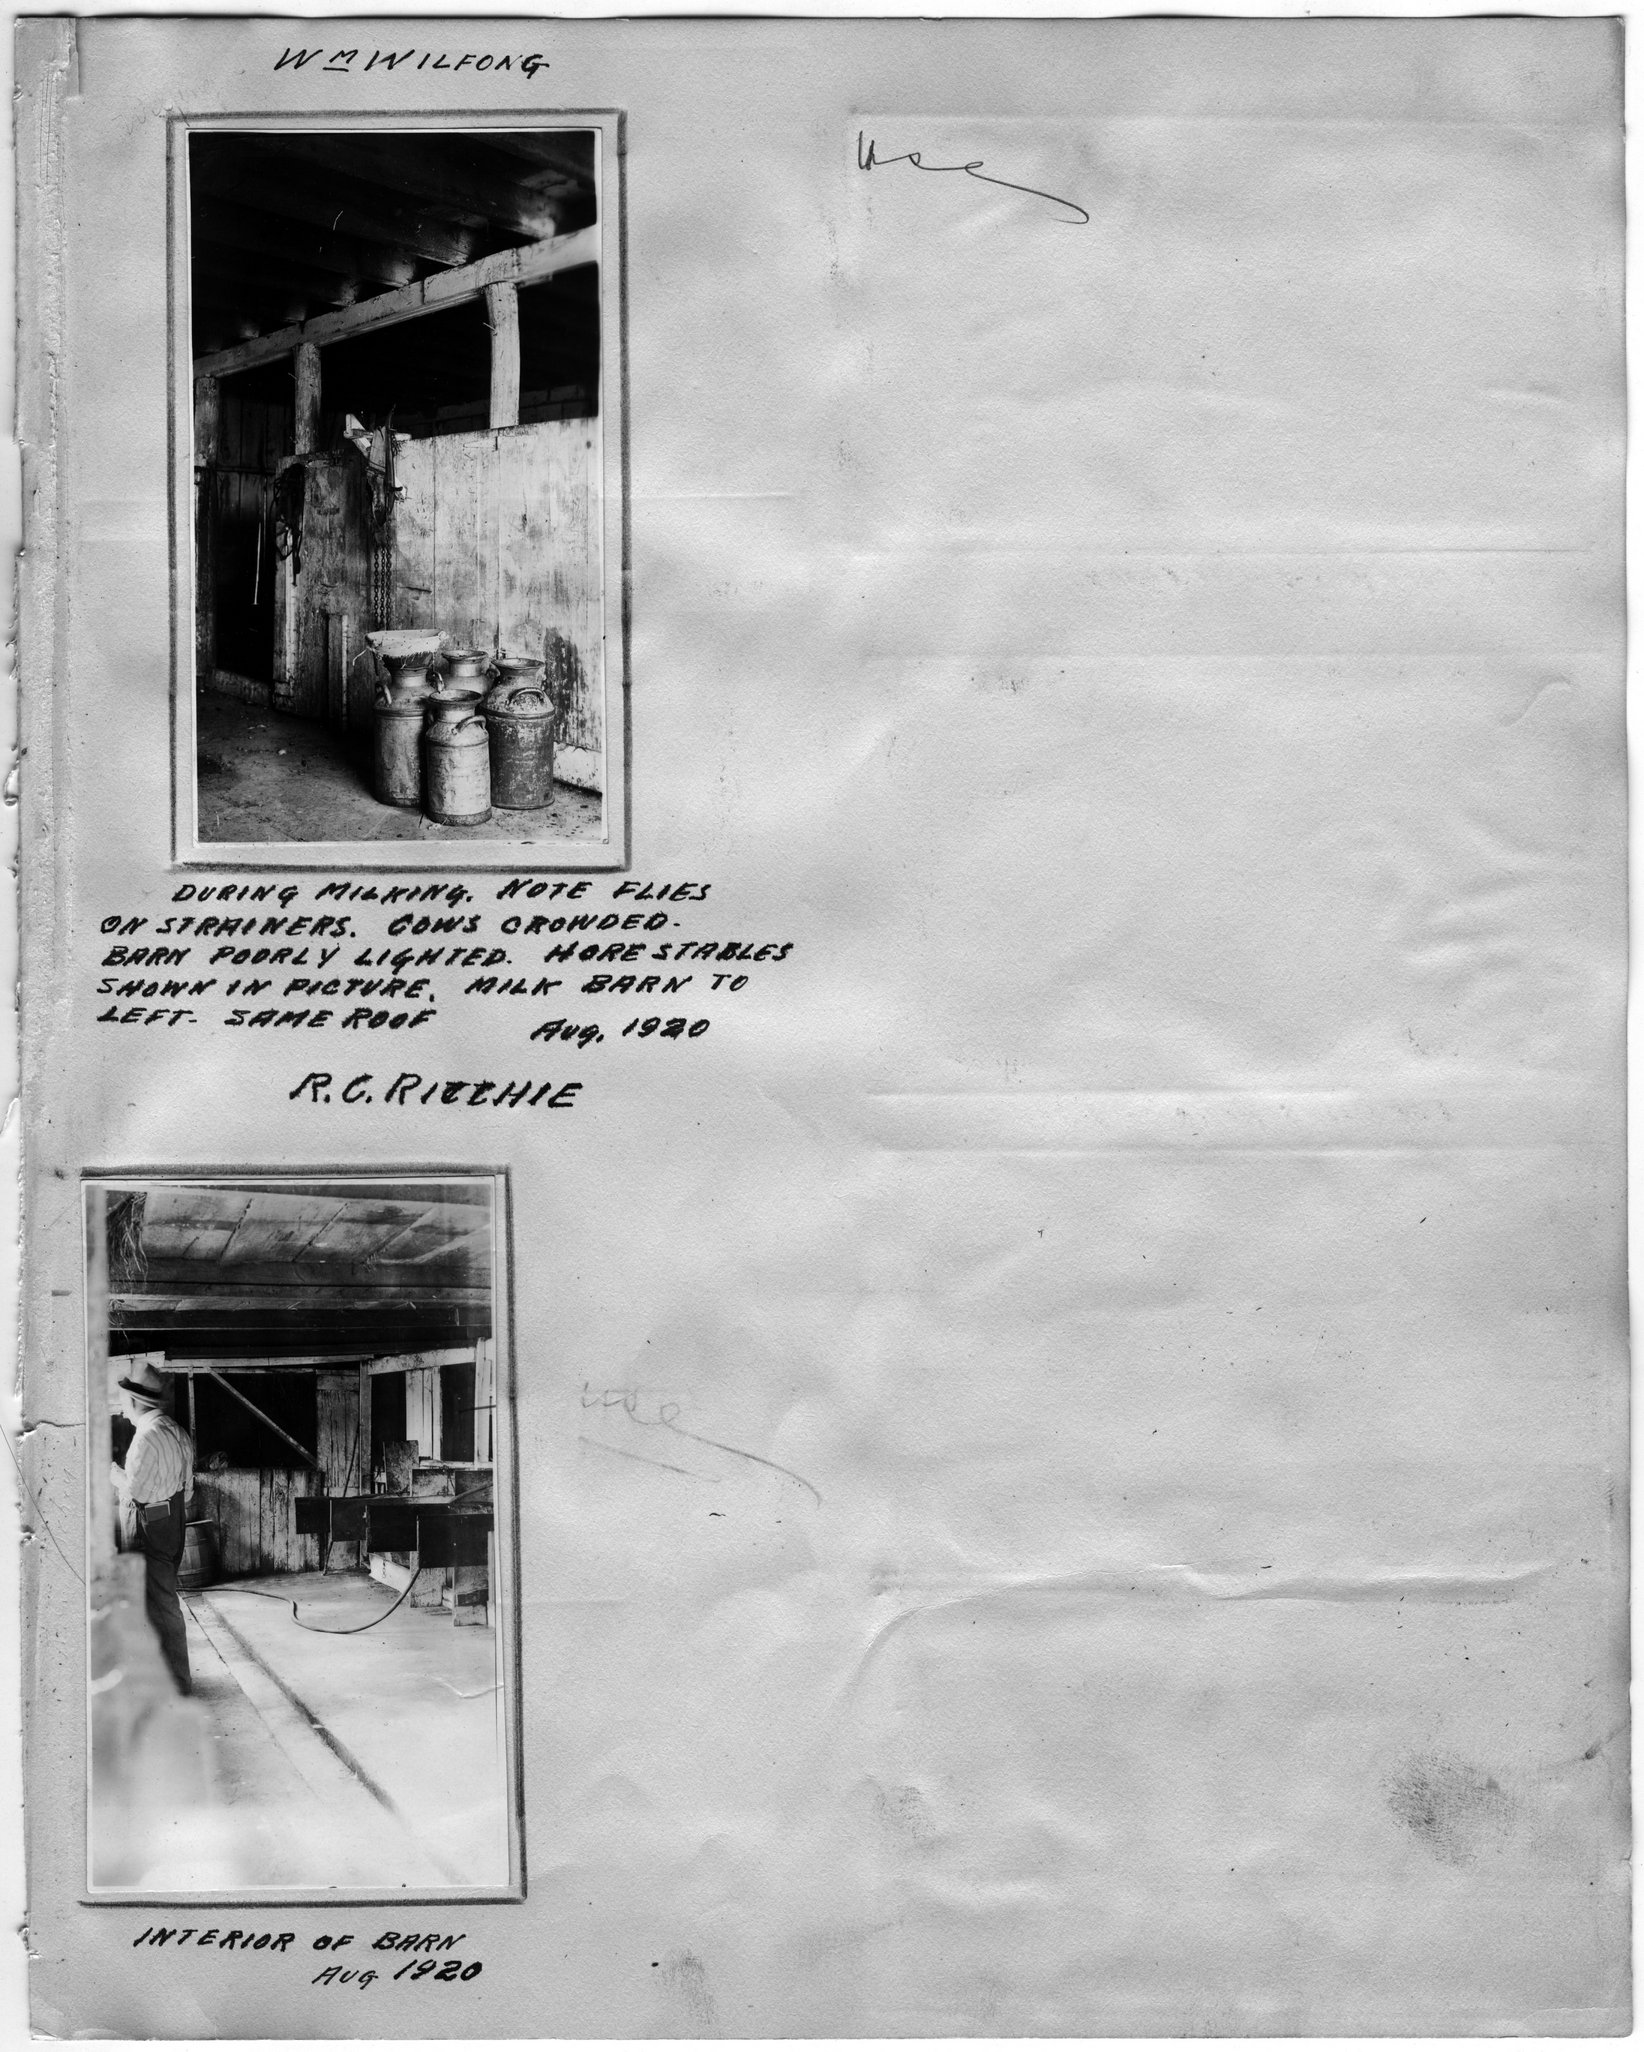 Wm WILFONG
use
DURING MILKING. NOTE FLIES
ON STRAINERS. COWS CROWDED.
BARN POORLY LIGHTED. HORE STABLES
SHOWN IN PICTURE. MILK BARN TO
LEFT. SAME ROOF
AUG. 1920
R.C. RITCHIE
use
INTERIOR OF BARN
AUG 1920